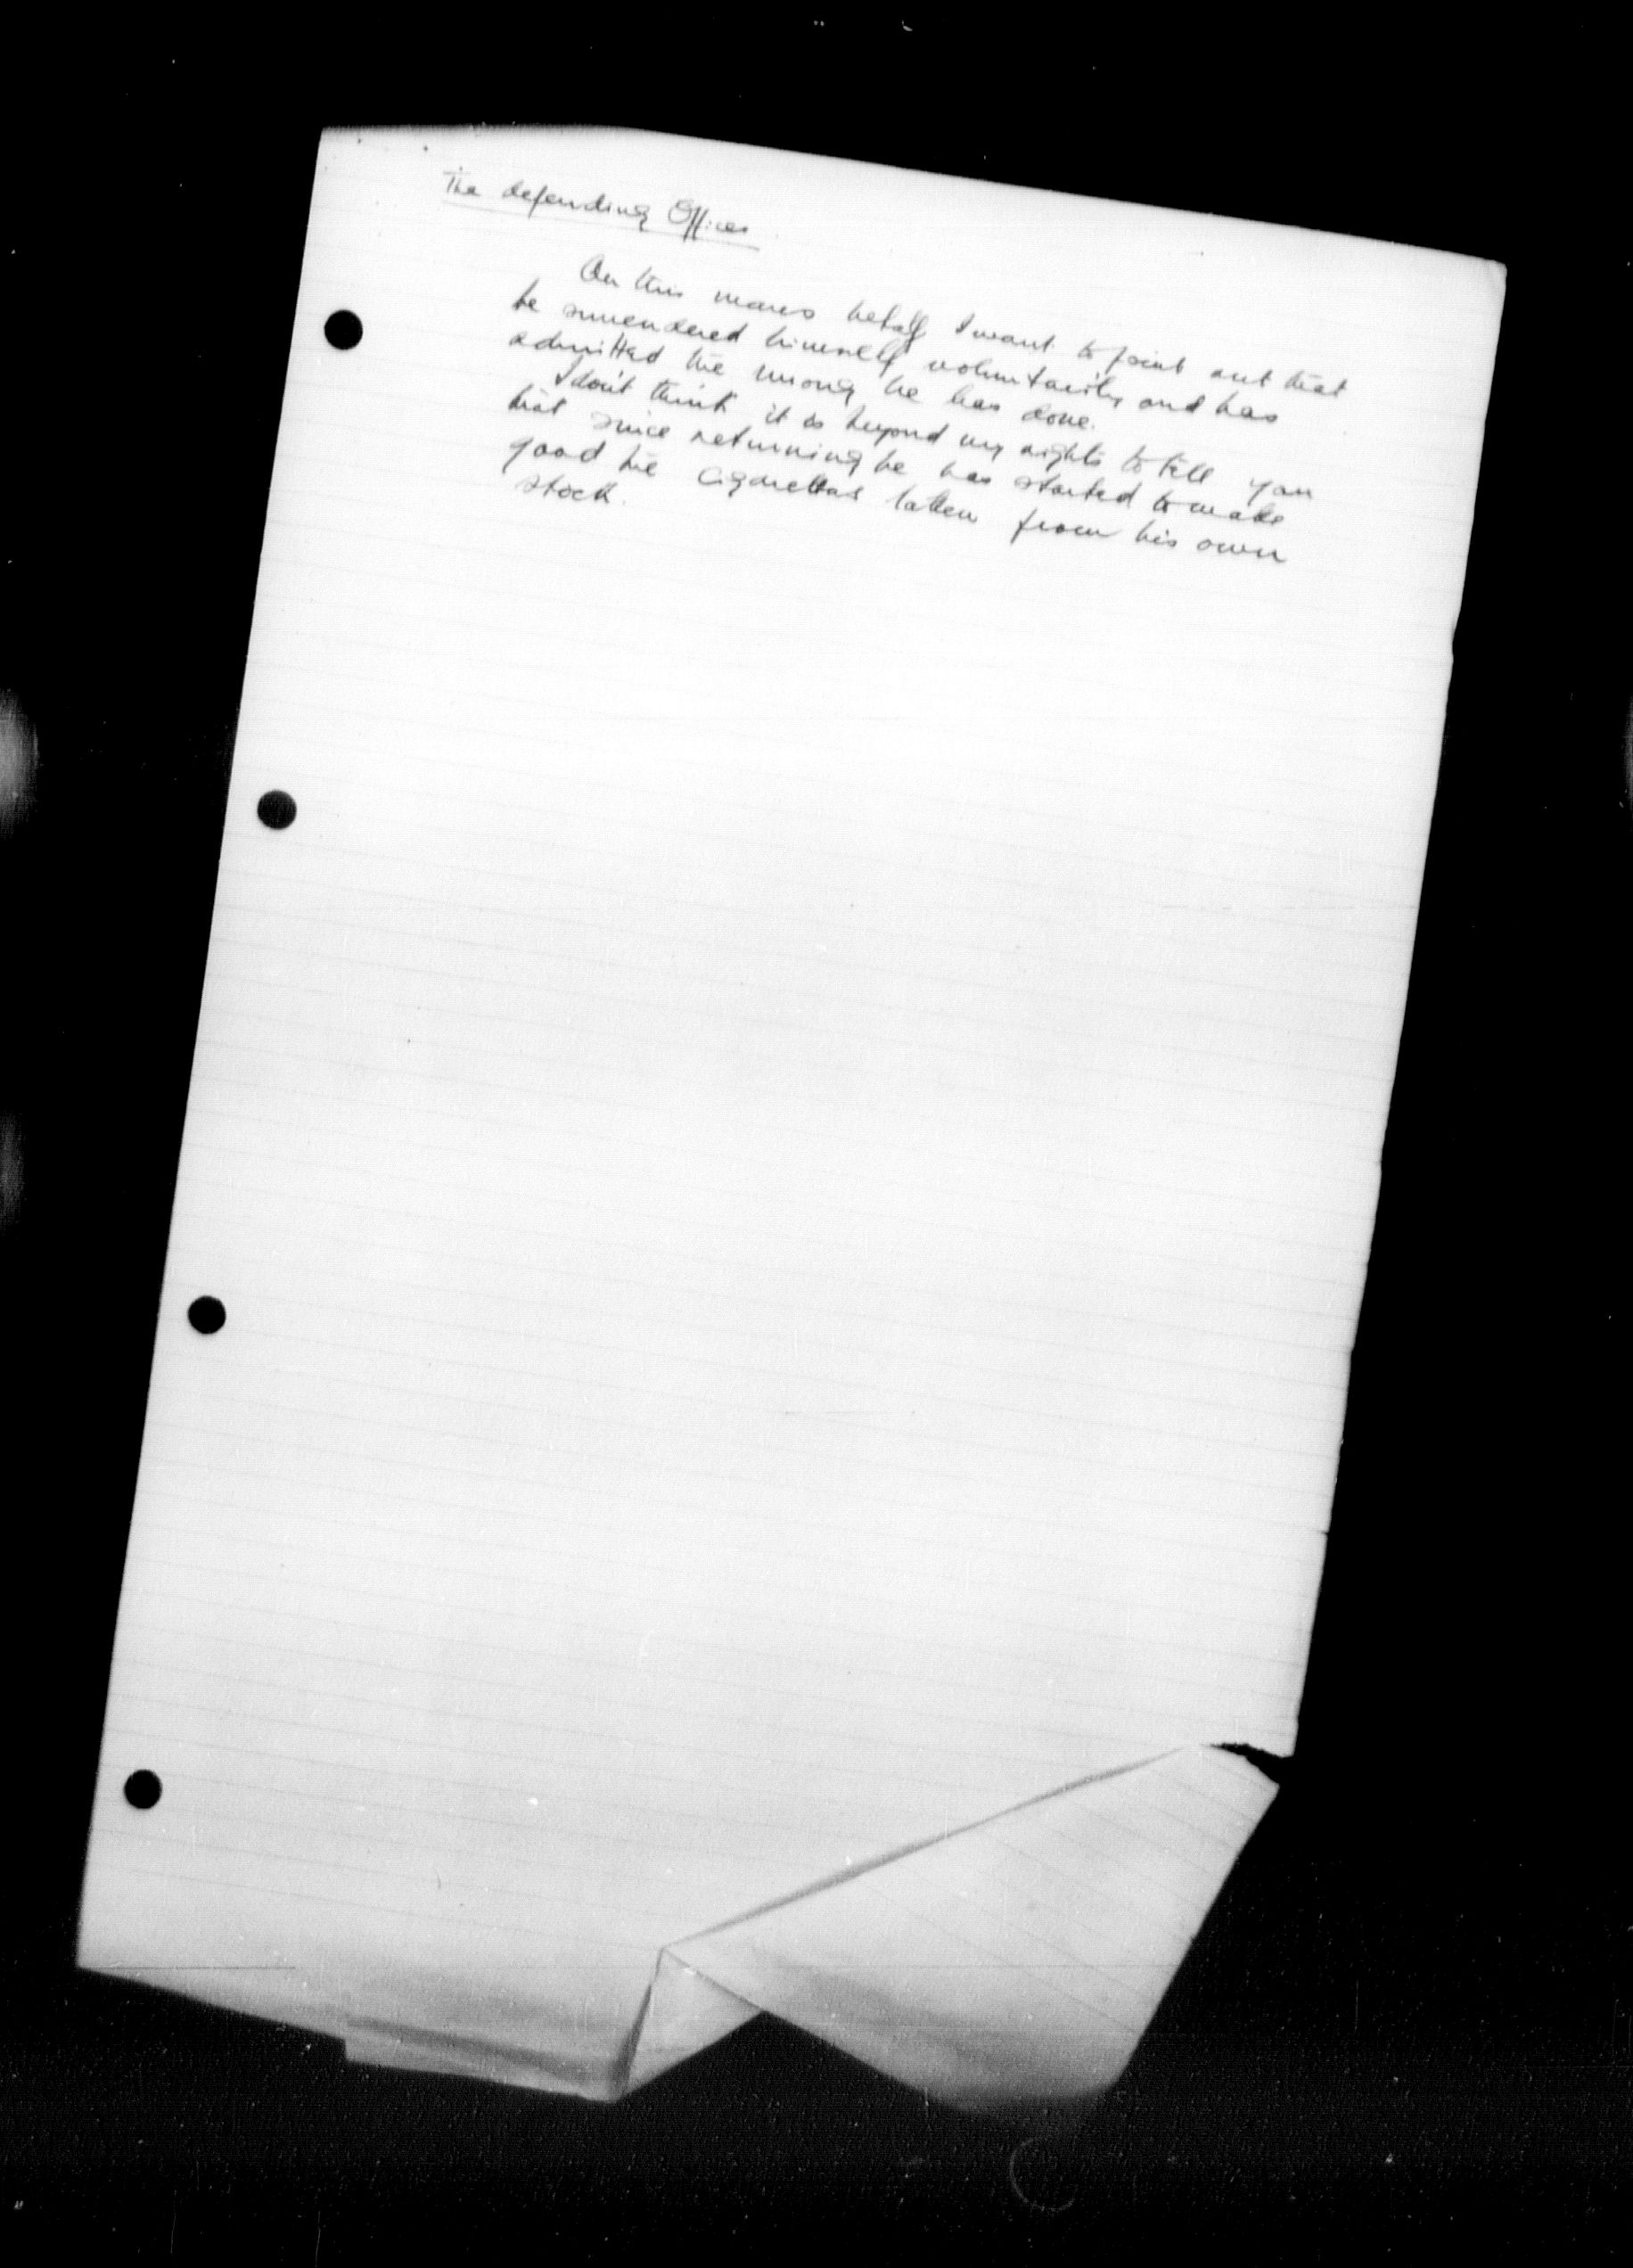 The defending Officer
On this mans behalf I want to point out that
he surrendered himself voluntarily and has
admitted the wrong he has done.
I don't think it is beyond my rights to tell you
that since returning he has started to make
good the cigarettes taken from his own
stock.